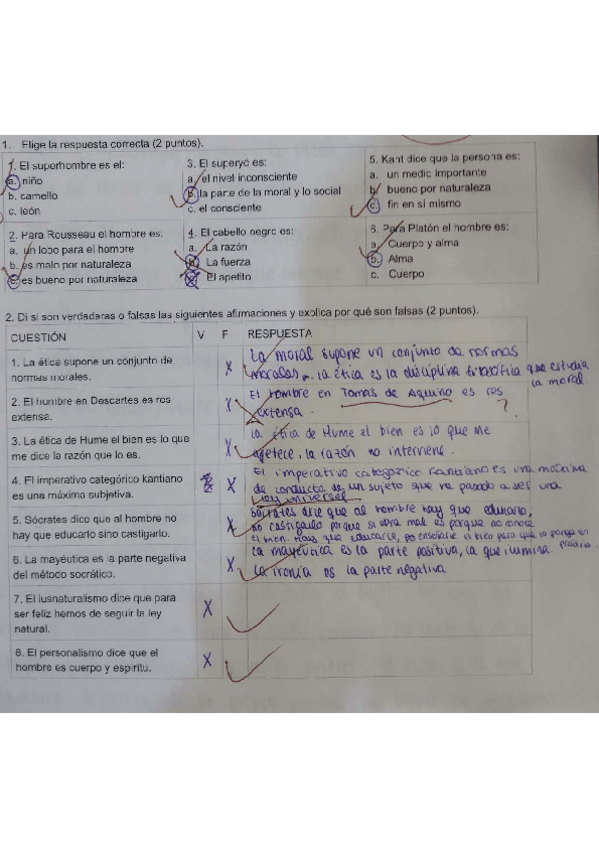 1. Elige la respuesta correcta (2 puntos).
1. El superhombre es el:
a. niño
b. camello
c. león
3. El superyó es:
a. el nivel inconsciente
b. la parte de la moral y lo social
c. el consciente
5. Kant dice que la persona es:
a. un medio importante
b. bueno por naturaleza
c. fin en sí mismo
2. Para Rousseau el hombre es:
a. un lobo para el hombre
b. es malo por naturaleza
c. es bueno por naturaleza
4. El cabello negro es:
a. La razón
b. La fuerza
c. El apetito
6. Para Platón el hombre es:
a. Cuerpo y alma
b. Alma
c. Cuerpo
2. Di si son verdaderas o falsas las siguientes afirmaciones y explica por qué son falsas (2 puntos).
CUESTIÓN V F RESPUESTA
1. La ética supone un conjunto de
normas morales.
X
La moral supone un conjunto de normas
morales. La ética es la disciplina filosófica que estudia
la moral
2. El hombre en Descartes es res
extensa.
X
El hombre en Tomas de Aquino es res
extensa.
?
3. La ética de Hume el bien es lo que
me dice la razón que lo es.
X
La ética de Hume el bien es lo que me
apetece, la razón no interviene.
4. El imperativo categórico kantiano
es una máxima subjetiva.
X
El imperativo categórico kantiano es una máxima
de conducta de un sujeto que ha pasado a ser una
ley universal
5. Sócrates dice que al hombre no
hay que educarlo sino castigarlo.
X
Sócrates dice que al hombre hay que educarlo,
no castigarlo porque si obra mal es porque no conoce
el bien. Hay que educarle, enseñarle el bien para que lo ponga en
práctica.
6. La mayéutica es la parte negativa
del método socrático.
X
La mayéutica es la parte positiva, la que ilumina.
La ironía es la parte negativa
7. El iusnaturalismo dice que para
ser feliz hemos de seguir la ley
natural.
X
8. El personalismo dice que el
hombre es cuerpo y espíritu.
X